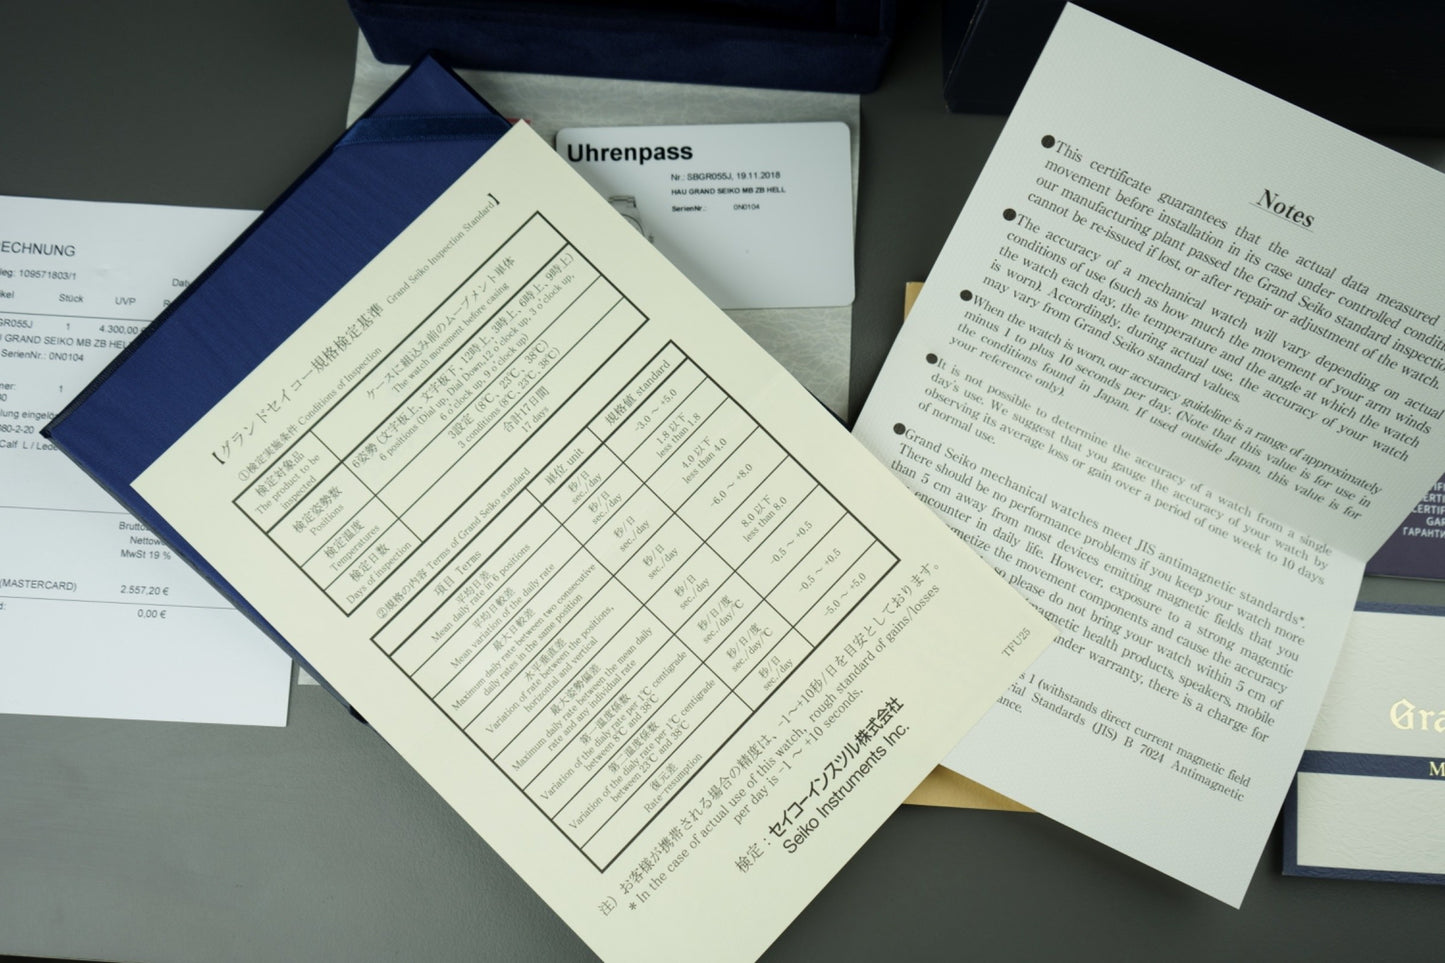 ECHNUNG
leg: 109571803/1
Stück
UVP
GR055J 1 4.300,00
GRAND SEIKO MB ZB HELL
SerienNr.: 0N0104
1
080-2-20
Calf L / Lede
Brutto
Nettowe
MwSt 19 %
(MASTERCARD) 2.557,20 €
0,00 €
Uhrenpass
Nr.: SBGR055J, 19.11.2018
HAU GRAND SEIKO MB ZB HELL
SerienNr.: 0N0104
【グランドセイコー規格検定基準 Grand Seiko Inspection Standard】
①検定実施条件 Conditions of Inspection
検定対象品
The product to be
inspected
ケースに組込み前のムーブメント単体
The watch movement before casing
検定姿勢数
Positions
6姿勢 (文字板上、文字板下、12時上、3時上、6時上、9時上)
6 positions (Dial up, Dial Down, 12 o'clock up, 3 o'clock up,
6 o'clock up, 9 o'clock up)
検定温度
Temperatures
3設定 (8℃、23℃、38℃)
3 conditions (8℃, 23℃, 38℃)
検定日数
Days of inspection
合計17日間
17 days
②規格の内容 Terms of Grand Seiko standard
項目 Terms
単位 unit
規格値 standard
平均日差
Mean daily rate in 6 positions
秒/日
sec./day
-3.0 ～ +5.0
平均日較差
Mean variation of the daily rate
秒/日
sec./day
1.8 以下
less than 1.8
最大日較差
Maximum daily rate between two consecutive
daily rates in the same position
秒/日
sec./day
4.0 以下
less than 4.0
水平垂直差
Variation of rate between the positions,
horizontal and vertical
秒/日
sec./day
-6.0 ～ +8.0
最大姿勢偏差
Maximum daily rate between the mean daily
rate and any individual rate
秒/日
sec./day
8.0 以下
less than 8.0
第一温度係数
Variation of the dialy rate per 1℃ centigrade
between 8℃ and 38℃
秒/日/度
sec./day/℃
-0.5 ～ +0.5
第二温度係数
Variation of the dialy rate per 1℃ centigrade
between 23℃ and 38℃
秒/日/度
sec./day/℃
-0.5 ～ +0.5
復元差
Rate-resumption
秒/日
sec./day
-5.0 ～ +5.0
注）お客様が携帯される場合の精度は、-1～+10秒/日を目安としております。
* In the case of actual use of this watch, rough standard of gains/losses
per day is -1 ～ +10 seconds.
検定：セイコーインスツル株式会社
Seiko Instruments Inc.
TFU25
Notes
●This certificate guarantees that the actual data measured
movement before installation in its case under controlled condit
our manufacturing plant passed the Grand Seiko standard inspecti
cannot be re-issued if lost, or after repair or adjustment of the watch.
●The accuracy of a mechanical watch will vary depending on actual
conditions of use (such as how much the movement of your arm winds
the watch each day, the temperature and the angle at which the watch
is worn). Accordingly, during actual use, the accuracy of your watch
may vary from Grand Seiko standard values.
●When the watch is worn, our accuracy guideline is a range of approximately
minus 1 to plus 10 seconds per day. (Note that this value is for use in
the conditions found in Japan. If used outside Japan, this value is for
your reference only).
●It is not possible to determine the accuracy of a watch from a single
day's use. We suggest that you gauge the accuracy of your watch by
observing its average loss or gain over a period of one week to 10 days
of normal use.
●Grand Seiko mechanical watches meet JIS antimagnetic standards*.
There should be no performance problems if you keep your watch more
than 5 cm away from most devices emitting magnetic fields that you
encounter in daily life. However, exposure to a strong magentic
netize the movement components and cause the accuracy
so please do not bring your watch within 5 cm of
agnetic health products, speakers, mobile
nder warranty, there is a charge for
1 (withstands direct current magnetic field
rial Standards (JIS) B 7024 Antimagnetic
ance.
CERTIF
GAR
ГАРАНТИ
Gra
M